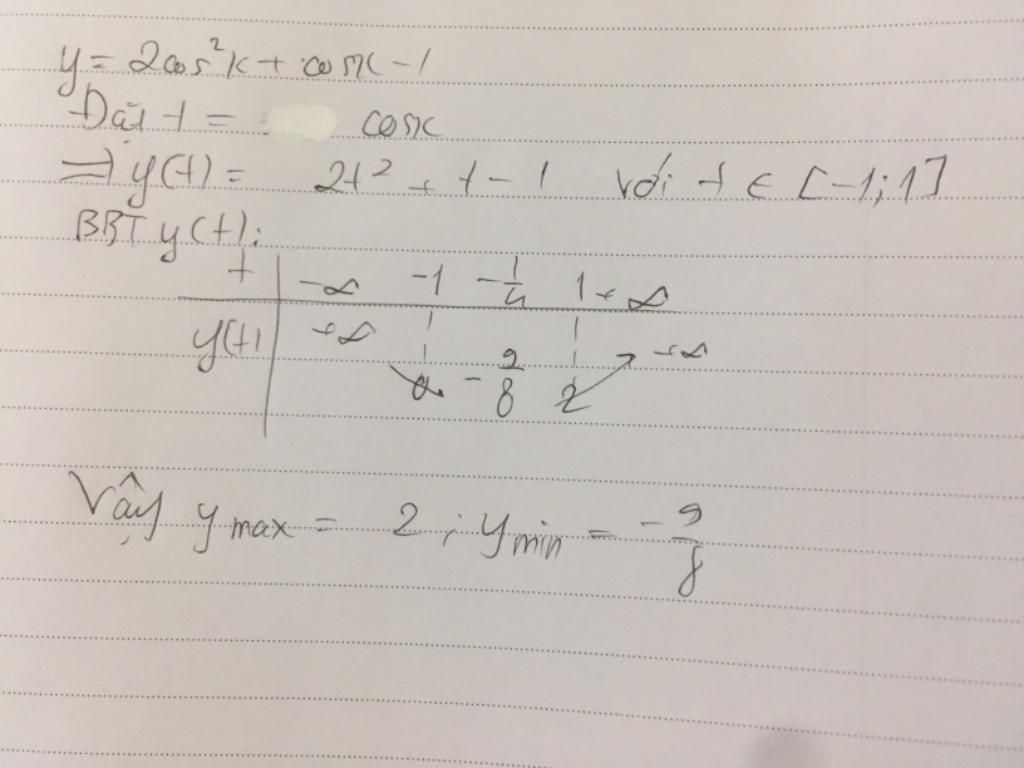 y = 2cos²x + cosx - 1
Đặt t = cosx
=> y(t) = 2t² + t - 1 với t ∈ [-1; 1]
BBT y(t):
t | -∞ -1 -1/4 1 +∞
y(t) | +∞ 0 -9/8 2 +∞
Vậy y max = 2 ; y min = -9/8